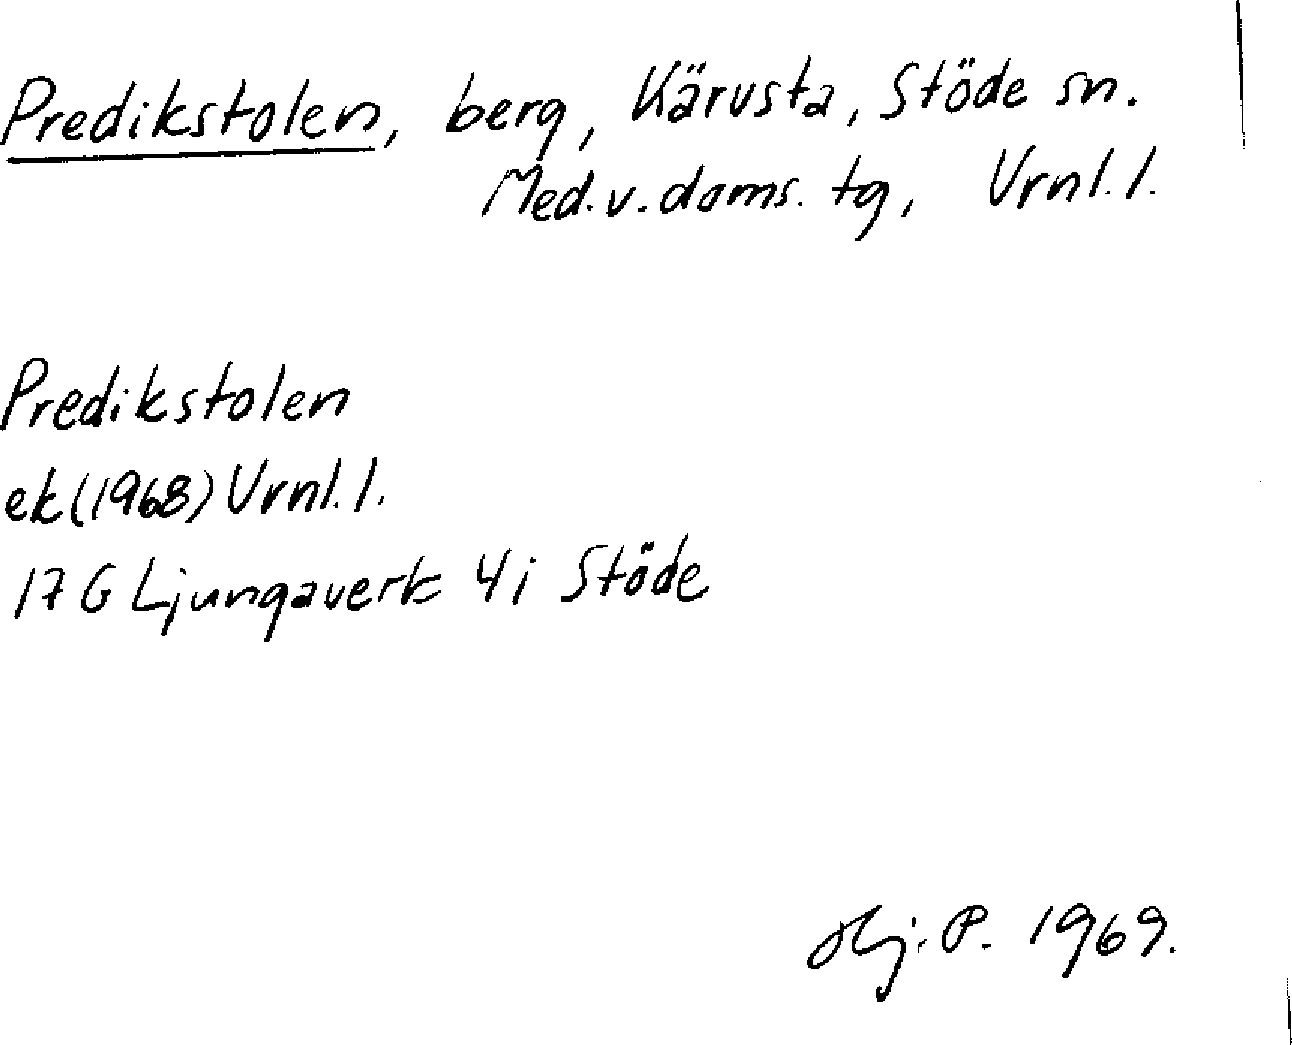 Predikstolen, berg, Kärvsta, Stöde sn.
Med.v.doms. tg, Vrnl.l.
Predikstolen
ek(1968)Vrnl.l.
17 G Ljungaverk 4i Stöde
Hj. P. 1969.